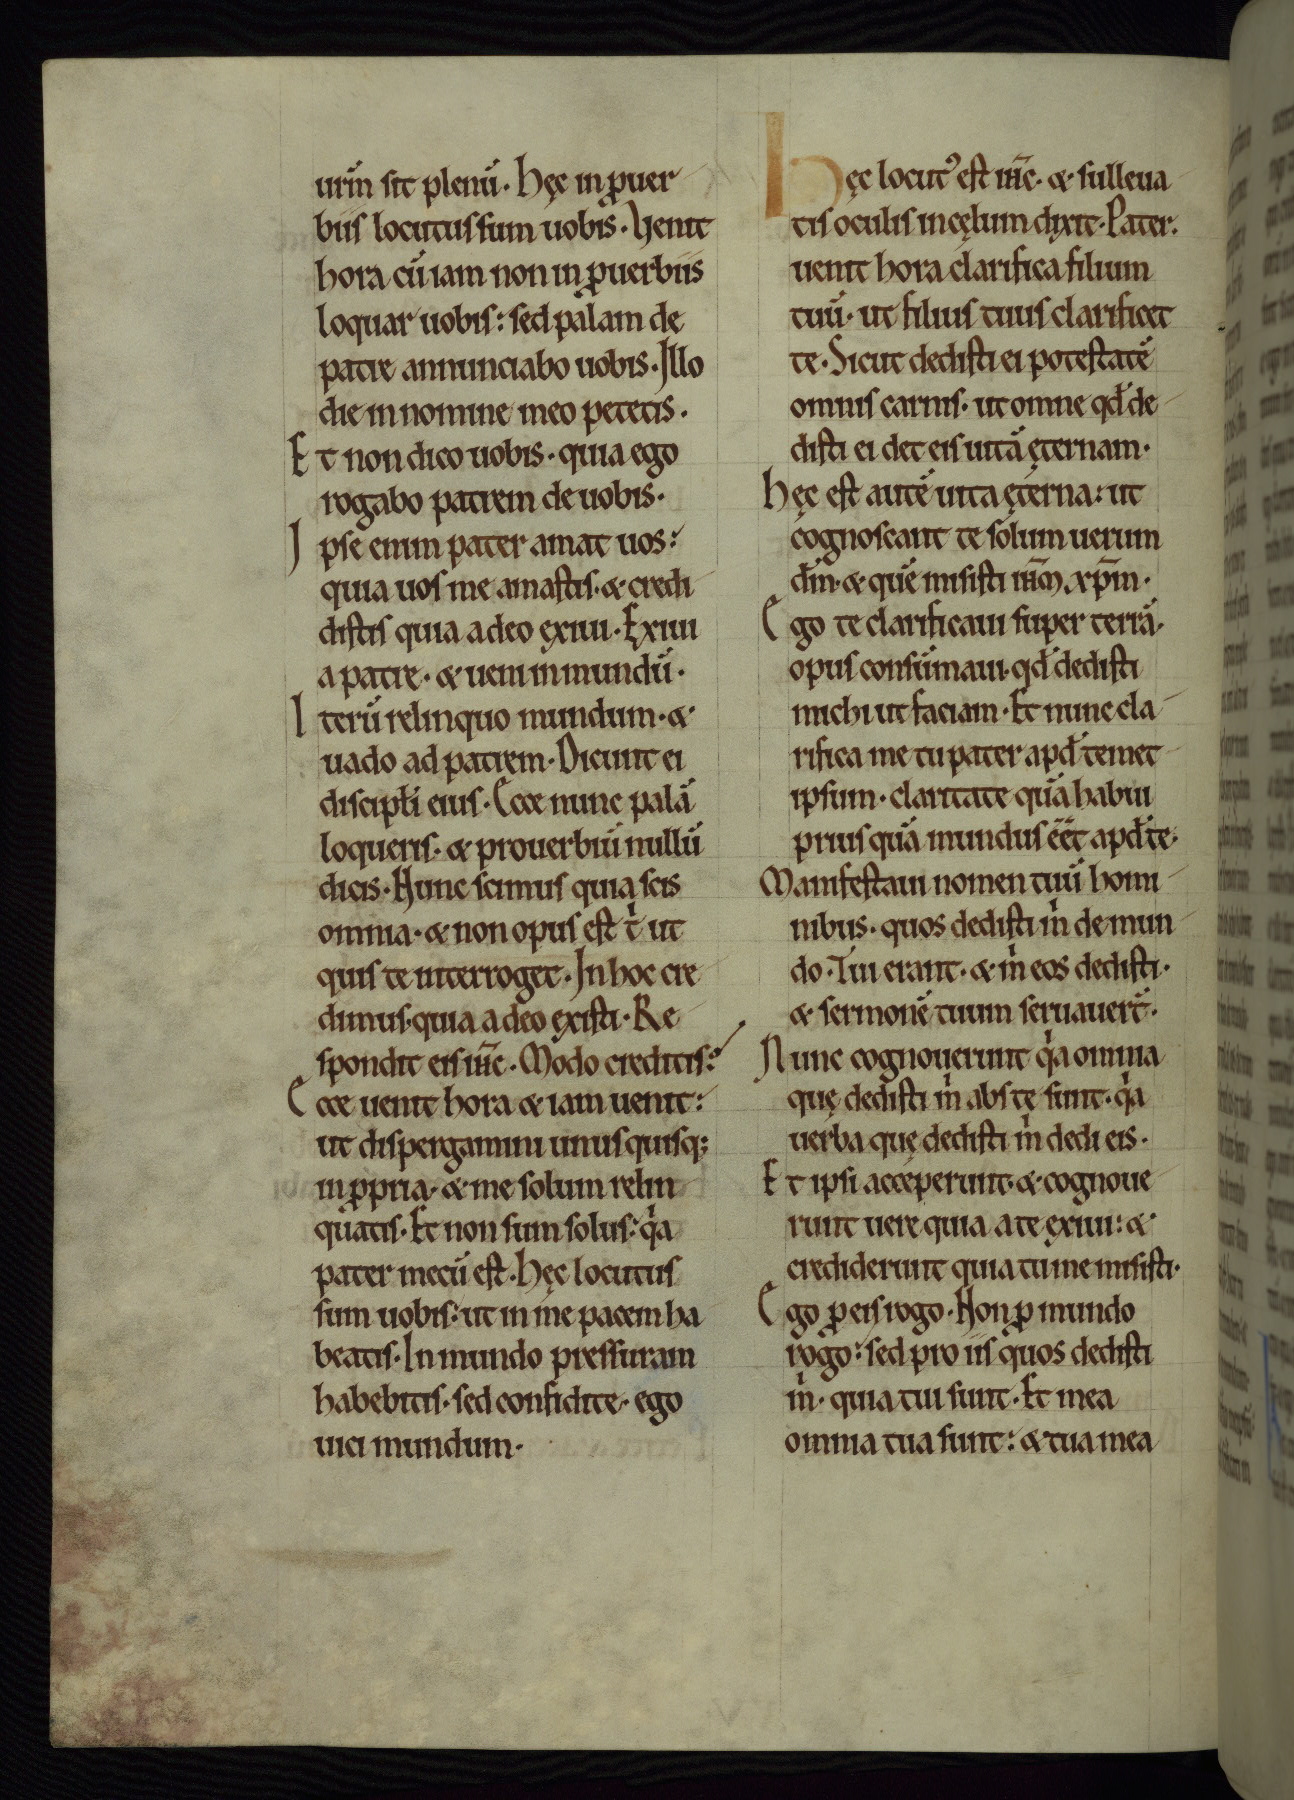 urm̄ sit plenū. Hęc in ꝓuer
biis locutus sum uobis. Venit
hora cū iam non in ꝓuerbiis
loquar uobis: sed palam de
patre annunciabo uobis. Illo
die in nomine meo petetis.
Et non dico uobis. quia ego
rogabo patrem de uobis.
Ipse enim pater amat uos:
quia uos me amastis. & credi
distis quia a deo exiui. Exiui
a patre. & ueni in mundū.
Iterū relinquo mundum. &
uado ad patrem. Dicunt ei
discipƚi eius. Ecce nunc palā
loqueris. & prouerbiū nullū
dicis. Nunc scimus quia scis
omnia. & non opus est t̍ ut
quis te interroget. In hoc cre
dimus. quia a deo existi. Re
spondit eis iħc. Modo creditis?
Ecce uenit hora & iam uenit:
ut dispergamini unusquisq;
in ꝓpria. & me solum relin
quatis. Et non sum solus: q̍a
pater mecū est. Hęc locutus
sum uobis: ut in me pacem ha
beatis. In mundo pressuram
habebitis. sed confidite. ego
uici mundum.
Hęc locutꝰ est iħc. & subleua
tis oculis in cęlum dixit. Pater:
uenit hora clarifica filium
tuū. ut filius tuus clarificet
te. Sicut dedisti ei potestatē
omnis carnis. ut omne qđ de
disti ei det eis uitā ęternam.
Hęc est autē uita ęterna: ut
cognoscant te solum uerum
dm̄. & quē misisti iħm xp̄m.
Ego te clarificaui super terrā.
opus consūmaui. qđ dedisti
michi ut faciam. Et nunc cla
rifica me tu pater apđ temet
ipsum. claritate quā habui
prius quā mundus eēt apđ te.
Manifestaui nomen tuū homi
nibus. quos dedisti m̍ de mun
do. Tui erant. & m̍ eos dedisti.
& sermonē tuum seruauer̄t.
Nunc cognouerunt q̍a omnia
quę dedisti m̍ abs te sunt. q̍a
uerba quę dedisti m̍ dedi eis.
Et ipsi acceperunt. & cognoue
runt uere quia a te exiui: &
crediderunt quia tu me misisti.
Ego ꝓ eis rogo. Non ꝓ mundo
rogo: sed pro iis quos dedisti
m̍. quia tui sunt. Et mea
omnia tua sunt: & tua mea